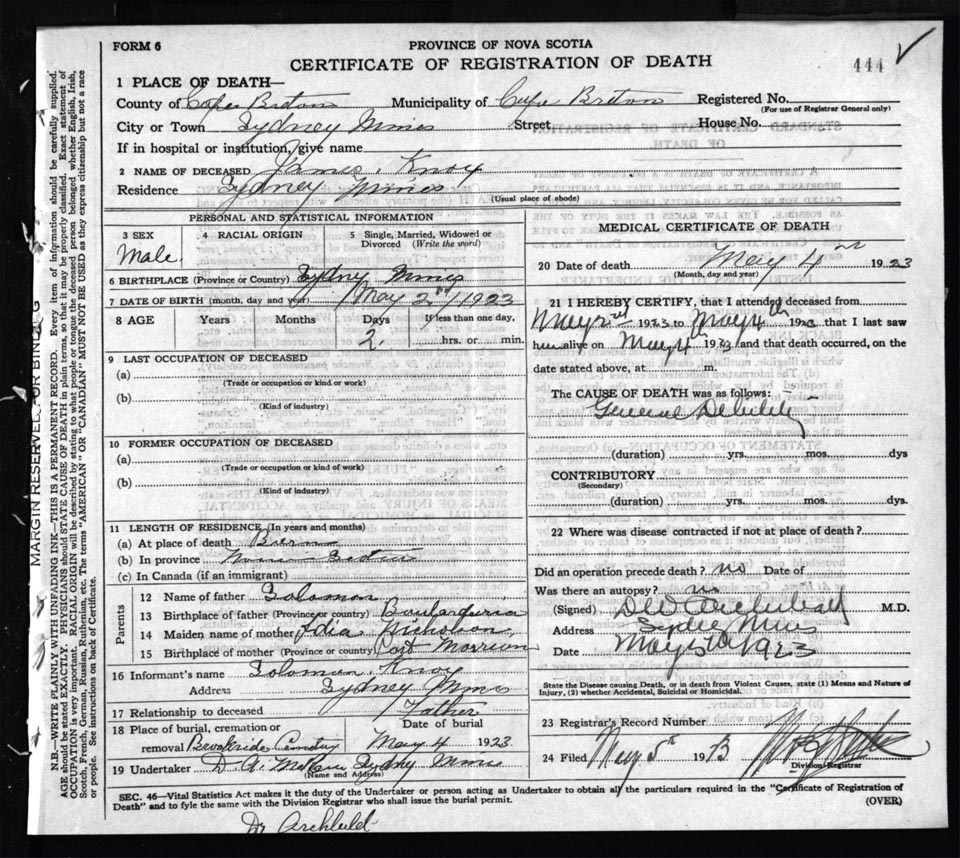 FORM 6
PROVINCE OF NOVA SCOTIA
CERTIFICATE OF REGISTRATION OF DEATH
444
1 PLACE OF DEATH—
County of Cape Breton Municipality of Cape Breton Registered No.
(For use of Registrar General only)
City or Town Sydney Mines Street House No.
If in hospital or institution, give name
2 NAME OF DECEASED James Knox
Residence Sydney Mines
(Usual place of abode)
PERSONAL AND STATISTICAL INFORMATION
3 SEX 4 RACIAL ORIGIN 5 Single, Married, Widowed or Divorced (Write the word)
Male
6 BIRTHPLACE (Province or Country) Sydny Mines
7 DATE OF BIRTH (month, day and year) May 2nd 1923
8 AGE Years Months Days If less than one day,
2 hrs. or min.
9 LAST OCCUPATION OF DECEASED
(a)
(Trade or occupation or kind or work)
(b)
(Kind of industry)
10 FORMER OCCUPATION OF DECEASED
(a)
(Trade or occupation or kind of work)
(b)
(Kind of industry)
11 LENGTH OF RESIDENCE (In years and months)
(a) At place of death Burn
(b) In province Nova Scotia
(c) In Canada (if an immigrant)
Parents
12 Name of father Solomon
13 Birthplace of father (Province or country)
14 Maiden name of mother Nicholson
15 Birthplace of mother (Province or country) Port Morrien
16 Informant's name Soloman Knox
Address Sydney Mines
17 Relationship to deceased Father
18 Place of burial, cremation or removal Brookside Cemetry
Date of burial
May 4 1923
19 Undertaker D. A. Sydny Mines
(Name and Address)
MEDICAL CERTIFICATE OF DEATH
20 Date of death May 4 1923
(Month, day and year)
21 I HEREBY CERTIFY, that I attended deceased from
May 2nd 1923 to May 4th 1923 that I last saw
him alive on May 4th 1923 and that death occurred, on the
date stated above, at m.
The CAUSE OF DEATH was as follows:
General Debility
(duration) yrs. mos. dys
CONTRIBUTORY
(Secondary)
(duration) yrs. mos. dys.
22 Where was disease contracted if not at place of death?
Did an operation precede death? no Date of
Was there an autopsy? no
(Signed) DW Archibald M.D.
Address Sydney Mines
Date May 5th 1923
State the Disease causing Death, or in death from Violent Causes, state (1) Means and Nature of
Injury, (2) whether Accidental, Suicidal or Homicidal.
23 Registrar's Record Number
24 Filed May 5th 1923
Division Registrar
SEC. 46—Vital Statistics Act makes it the duty of the Undertaker or person acting as Undertaker to obtain all the particulars required in the "Certificate of Registration of
Death" and to fyle the same with the Division Registrar who shall issue the burial permit.
(OVER)
Dr Archbuld
MARGIN RESERVED FOR BINDING
N.B.—WRITE PLAINLY WITH UNFADING INK—THIS IS A PERMANENT RECORD. Every item of information should be carefully supplied.
AGE should be stated EXACTLY. PHYSICIANS should STATE CAUSE OF DEATH in plain terms, so that it may be properly classified. Exact statement of
OCCUPATION is very important. RACIAL ORIGIN will be described by stating to what people or tongue the deceased person belonged, whether English, Irish,
Scotch, French, German, Russian, Ruthenian, etc. The terms "AMERICAN" OR "CANADIAN" MUST NOT BE USED as they express citizenship but not a race
or people. See instructions on back of Certificate.